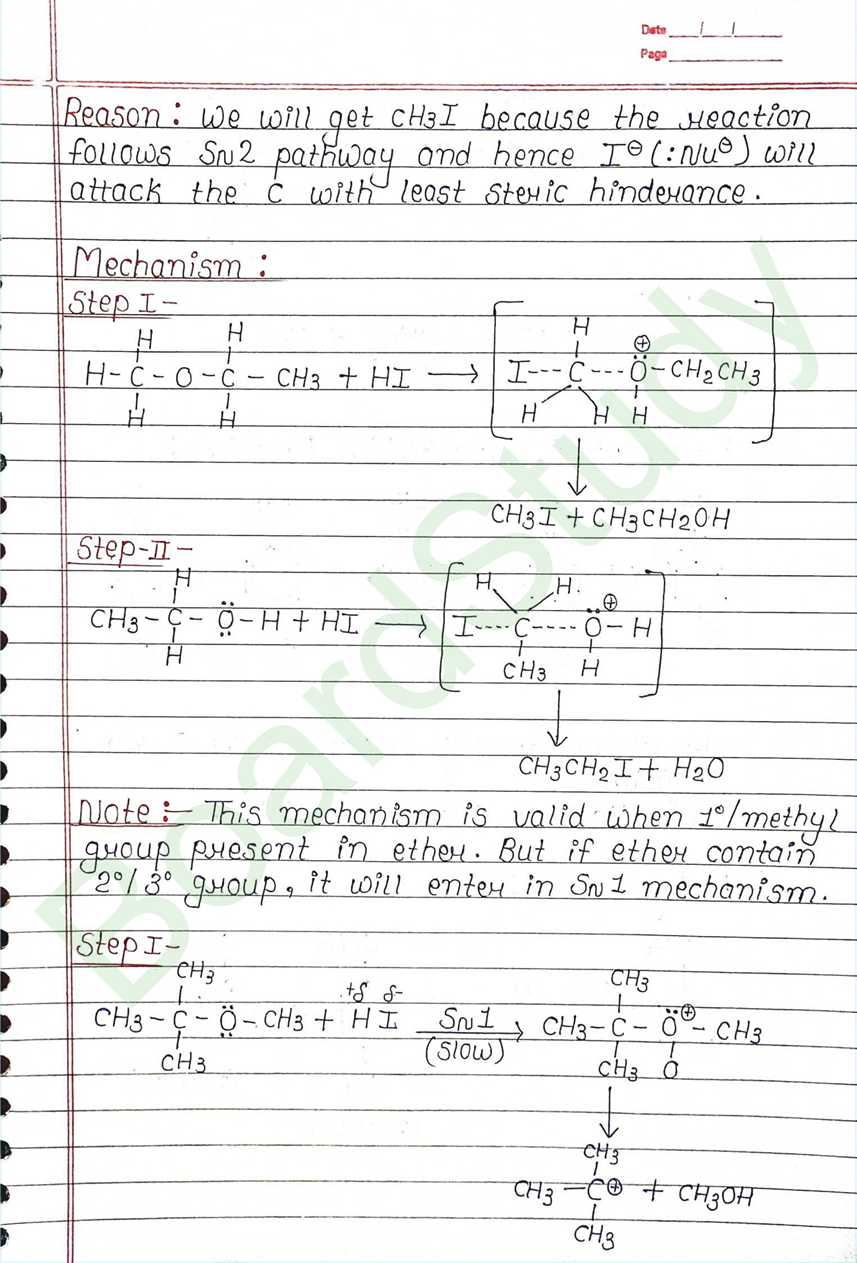 Date ___/___/___
Page ___________
Reason : We will get CH3I because the reaction
follows SN2 pathway and hence I⊖(:Nu⊖) will
attack the C with least steric hinderance.
Mechanism :
Step I-
H H H ⊕
H-C-O-C-CH3 + HI ⟶ [I---C---Ö-CH2CH3]
H H H H H
↓
CH3I + CH3CH2OH
Step-II-
H H H ⊕
CH3-C-Ö-H + HI ⟶ [I----C----Ö-H]
H CH3 H
↓
CH3CH2I + H2O
Note :- This mechanism is valid when 1°/methyl
group present in ether. But if ether contain
2°/3° group, it will enter in SN1 mechanism.
Step I-
CH3 +δ δ- CH3
CH3-C-Ö-CH3 + HI SN1 ⟶ (Slow) CH3-C-Ö⊕-CH3
CH3 CH3 O
↓
CH3
CH3-C⊕ + CH3OH
CH3
BoardStudy